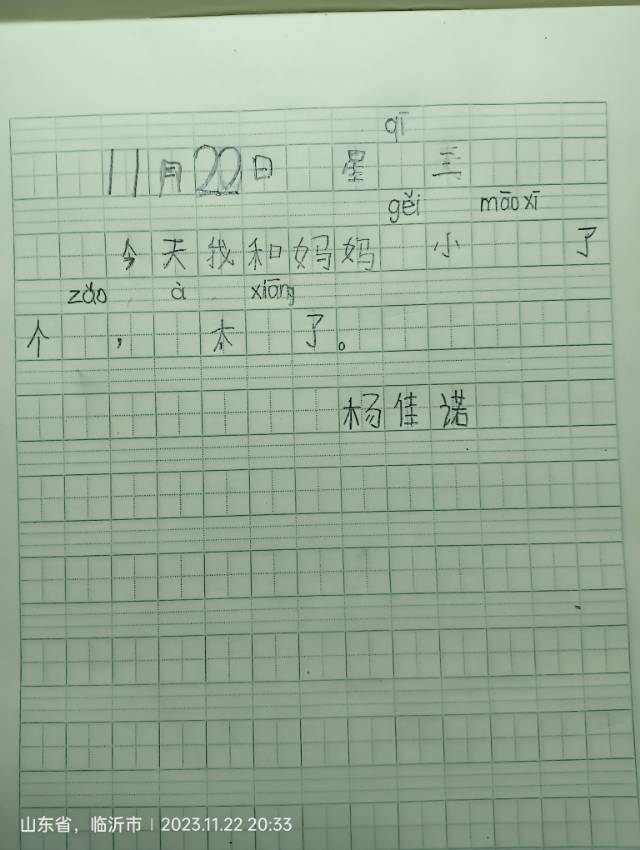 qī
11月22日 星 三
gěi māo xī
今天我和妈妈 小 了
zǎo à xiāng
个 ， 太 了。
杨佳诺
山东省，临沂市 | 2023.11.22 20:33